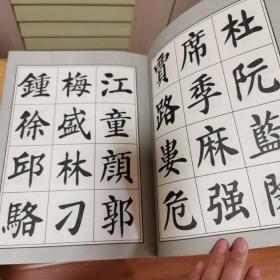 杜阮藍
席季麻强
賈路婁危
江童顔郭
梅盛林刁
鍾徐邱駱